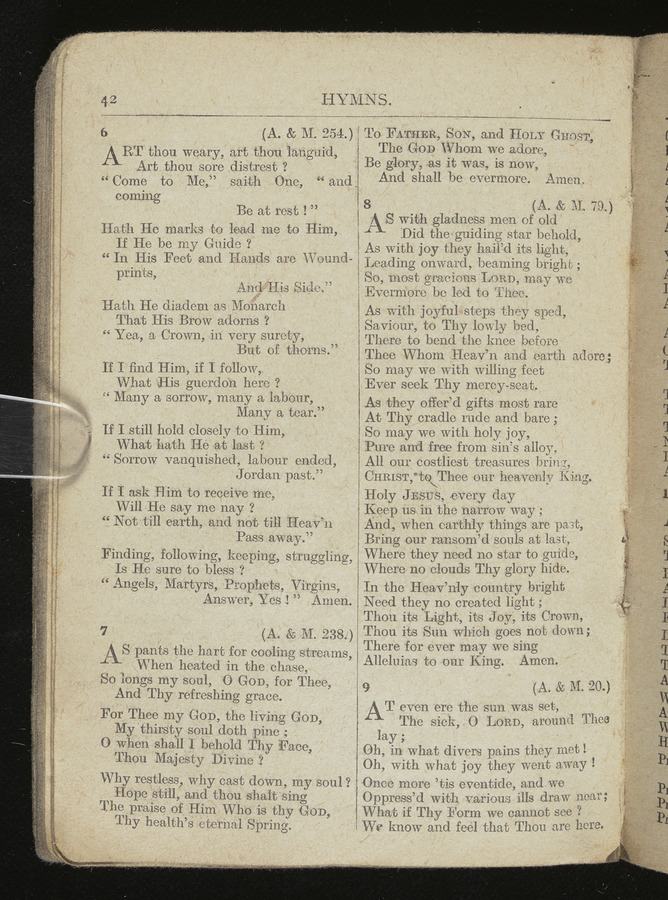 42
HYMNS.
6 (A. & M. 254.)
ART thou weary, art thou languid,
Art thou sore distrest ?
“ Come to Me,” saith One, “ and
coming
Be at rest ! ”
Hath He marks to lead me to Him,
If He be my Guide ?
“ In His Feet and Hands are Wound-
prints,
And His Side.”
Hath He diadem as Monarch
That His Brow adorns ?
“ Yea, a Crown, in very surety,
But of thorns.”
If I find Him, if I follow,
What His guerdon here ?
“ Many a sorrow, many a labour,
Many a tear.”
If I still hold closely to Him,
What hath He at last ?
“ Sorrow vanquished, labour ended,
Jordan past.”
If I ask Him to receive me,
Will He say me nay ?
“ Not till earth, and not till Heav’n
Pass away.”
Finding, following, keeping, struggling,
Is He sure to bless ?
“ Angels, Martyrs, Prophets, Virgins,
Answer, Yes ! ” Amen.
7 (A. & M. 238.)
AS pants the hart for cooling streams,
When heated in the chase,
So longs my soul, O GOD, for Thee,
And Thy refreshing grace.
For Thee my GOD, the living GOD,
My thirsty soul doth pine ;
O when shall I behold Thy Face,
Thou Majesty Divine ?
Why restless, why cast down, my soul ?
Hope still, and thou shalt sing
The praise of Him Who is thy GOD,
Thy health’s eternal Spring.
To FATHER, SON, and HOLY GHOST,
The GOD Whom we adore,
Be glory, as it was, is now,
And shall be evermore. Amen.
8 (A. & M. 79.)
AS with gladness men of old
Did the guiding star behold,
As with joy they hail’d its light,
Leading onward, beaming bright ;
So, most gracious LORD, may we
Evermore be led to Thee.
As with joyful steps they sped,
Saviour, to Thy lowly bed,
There to bend the knee before
Thee Whom Heav’n and earth adore;
So may we with willing feet
Ever seek Thy mercy-seat.
As they offer’d gifts most rare
At Thy cradle rude and bare ;
So may we with holy joy,
Pure and free from sin’s alloy,
All our costliest treasures bring,
CHRIST, to Thee our heavenly King.
Holy JESUS, every day
Keep us in the narrow way ;
And, when earthly things are past,
Bring our ransom’d souls at last,
Where they need no star to guide,
Where no clouds Thy glory hide.
In the Heav’nly country bright
Need they no created light ;
Thou its Light, its Joy, its Crown,
Thou its Sun which goes not down;
There for ever may we sing
Alleluias to our King. Amen.
9 (A. & M. 20.)
AT even ere the sun was set,
The sick, O LORD, around Thee
lay ;
Oh, in what divers pains they met !
Oh, with what joy they went away !
Once more ’tis eventide, and we
Oppress’d with various ills draw near;
What if Thy Form we cannot see ?
We know and feel that Thou are here.